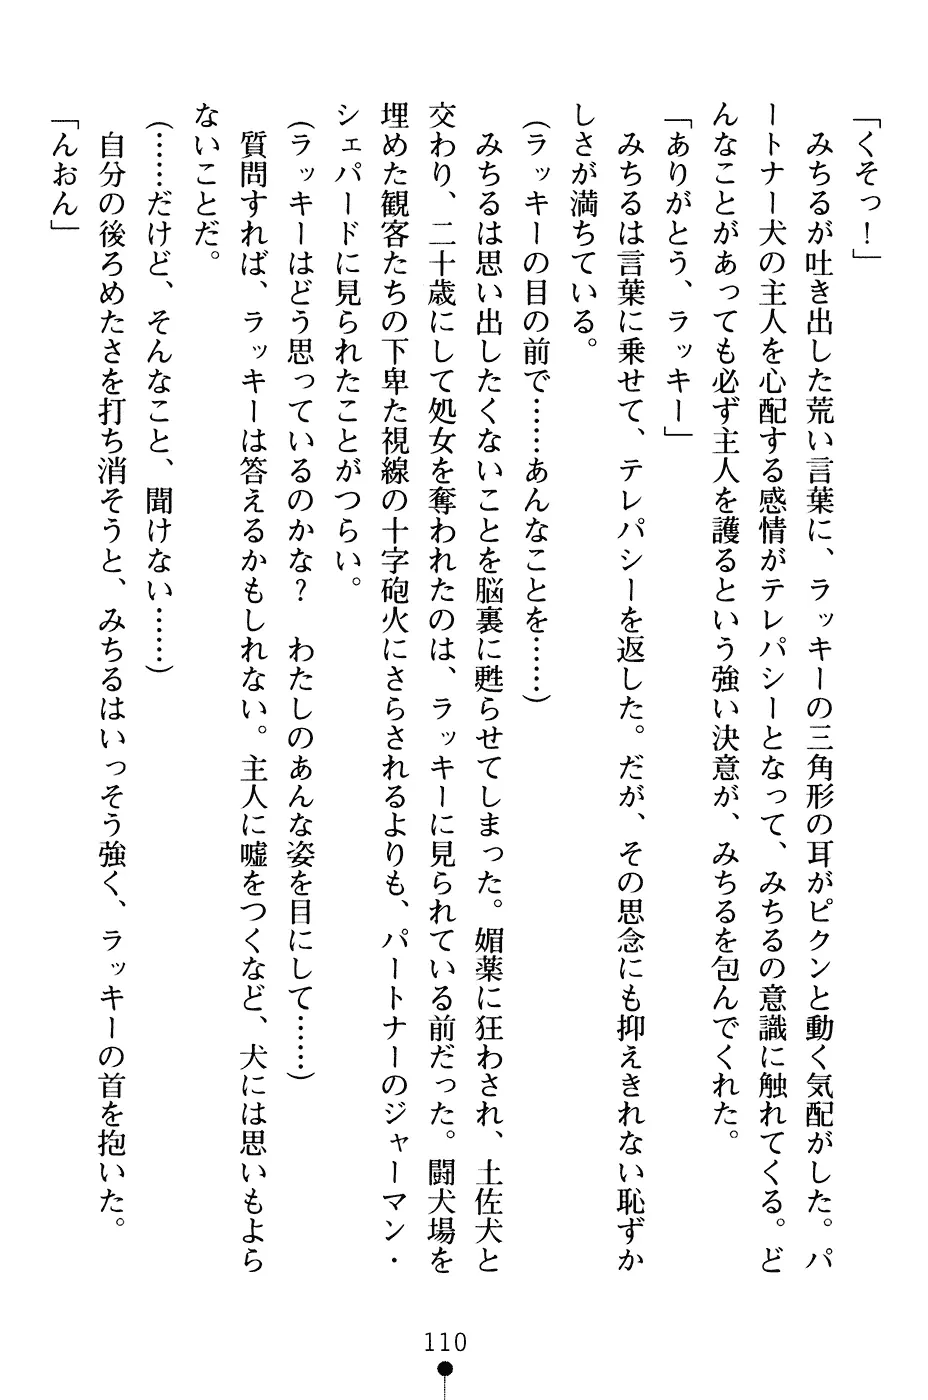 「くそっ！」
　みちるが吐き出した荒い言葉に、ラッキーの三角形の耳がピクンと動く気配がした。パ
ートナー犬の主人を心配する感情がテレパシーとなって、みちるの意識に触れてくる。ど
んなことがあっても必ず主人を護るという強い決意が、みちるを包んでくれた。
「ありがとう、ラッキー」
　みちるは言葉に乗せて、テレパシーを返した。だが、その思念にも抑えきれない恥ずか
しさが満ちている。
（ラッキーの目の前で……あんなことを……）
　みちるは思い出したくないことを脳裏に甦らせてしまった。媚薬に狂わされ、土佐犬と
交わり、二十歳にして処女を奪われたのは、ラッキーに見られている前だった。闘犬場を
埋めた観客たちの下卑た視線の十字砲火にさらされるよりも、パートナーのジャーマン・
シェパードに見られたことがつらい。
（ラッキーはどう思っているのかな？　わたしのあんな姿を目にして……）
　質問すれば、ラッキーは答えるかもしれない。主人に嘘をつくなど、犬には思いもよら
ないことだ。
（……だけど、そんなこと、聞けない……）
　自分の後ろめたさを打ち消そうと、みちるはいっそう強く、ラッキーの首を抱いた。
「んおん」
110